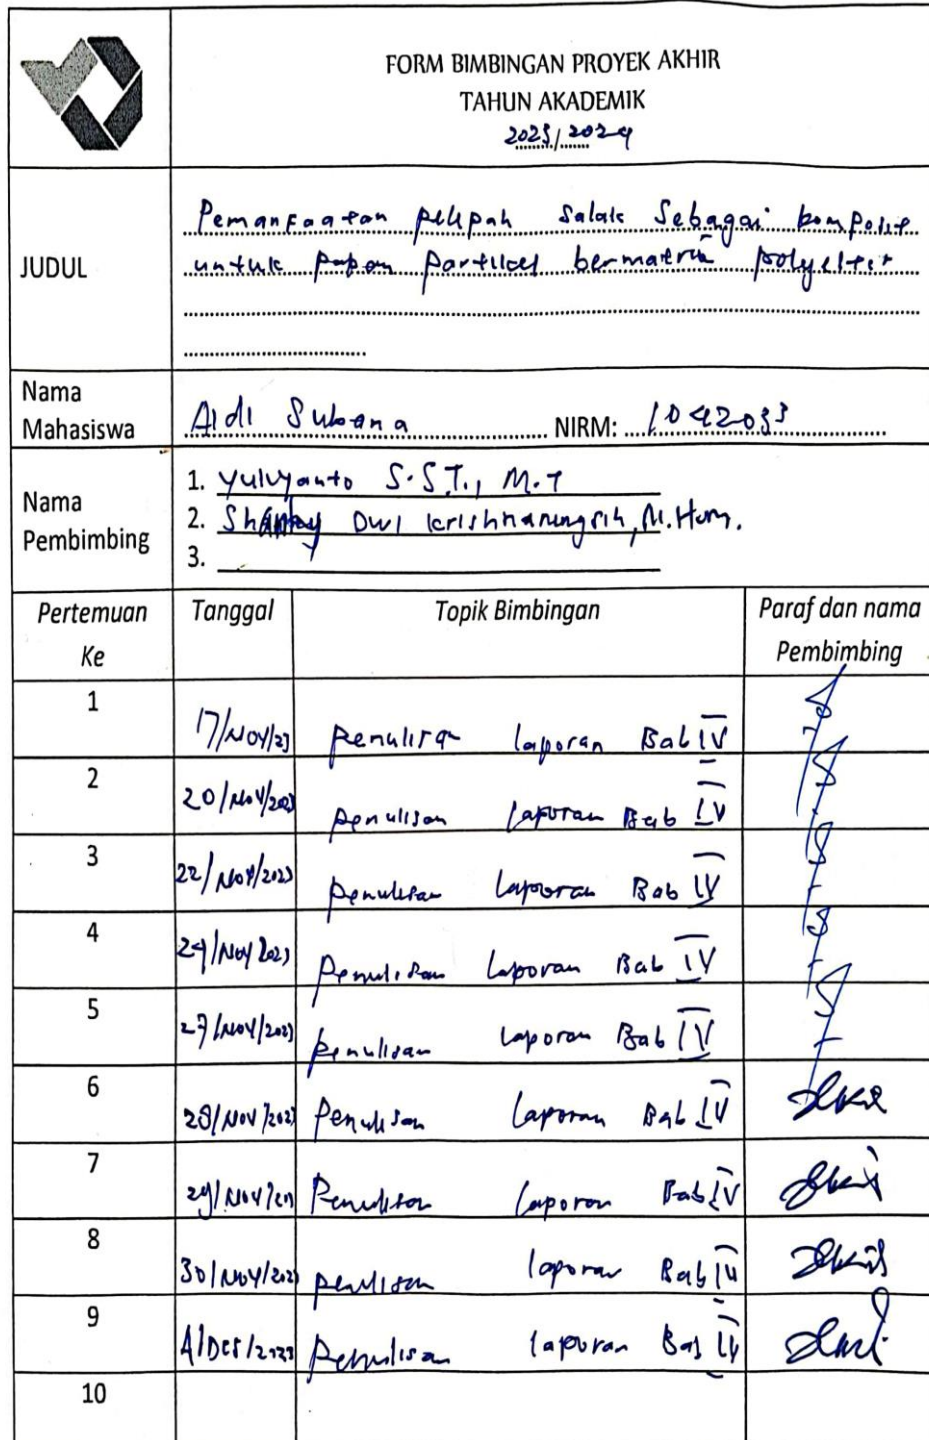 FORM BIMBINGAN PROYEK AKHIR
TAHUN AKADEMIK
2023/2024
JUDUL
Pemanfaatan pelepah Salak Sebagai komposit
untuk papan partikel bermatrik polyester
Nama
Mahasiswa
Aldi Subana NIRM: 1042033
Nama
Pembimbing
1. Yulyanto S.S.T., M.T
2. Shanty Dwi Krishnaningsih, M.Hum.
3.
Pertemuan Ke Tanggal Topik Bimbingan Paraf dan nama Pembimbing
1 17/Nov/23 Penulisan laporan Bab IV
2 20/Nov/2023 penulisan laporan Bab IV
3 22/Nov/2023 penulisan laporan Bab IV
4 24/Nov/2023 Penulisan laporan Bab IV
5 27/Nov/2023 penulisan laporan Bab IV
6 28/Nov/2023 Penulisan laporan Bab IV
7 29/Nov/2023 Penulisan laporan Bab IV
8 30/Nov/2023 penulisan laporan Bab IV
9 4/Des/2023 Penulisan laporan Bab IV
10